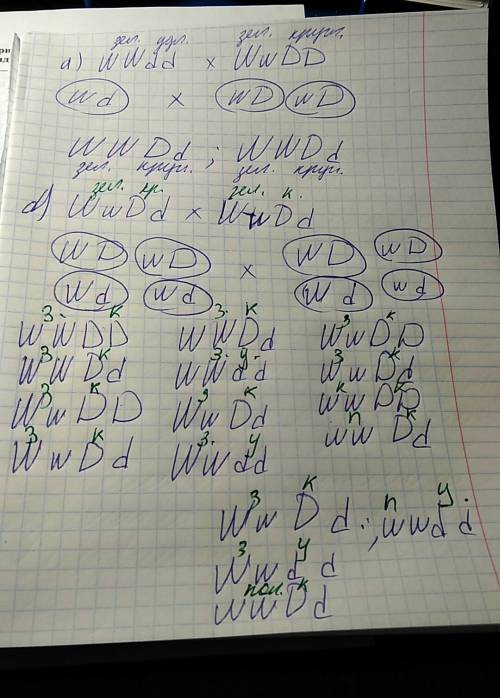 зел. удл. зел. кругл.
а) WWdd × WwDD
Wd × WD wD
WWDd ; WWDd
зел. кругл. зел. кругл.
зел. кр. зел. к.
WwDd × WwDd
WD wD × WD wD
Wd wd Wd wd
з. к з. к з к
WWDD WWDd WwDD
з к з. у. з к
WWDd WWdd WwDd
з к з к к к
WwDD WwDd wwDD
з к з. у п к
WwDd Wwdd wwDd
з к п у
WwDd ; wwdd
з у
Wwdd
пол. к
wwDd